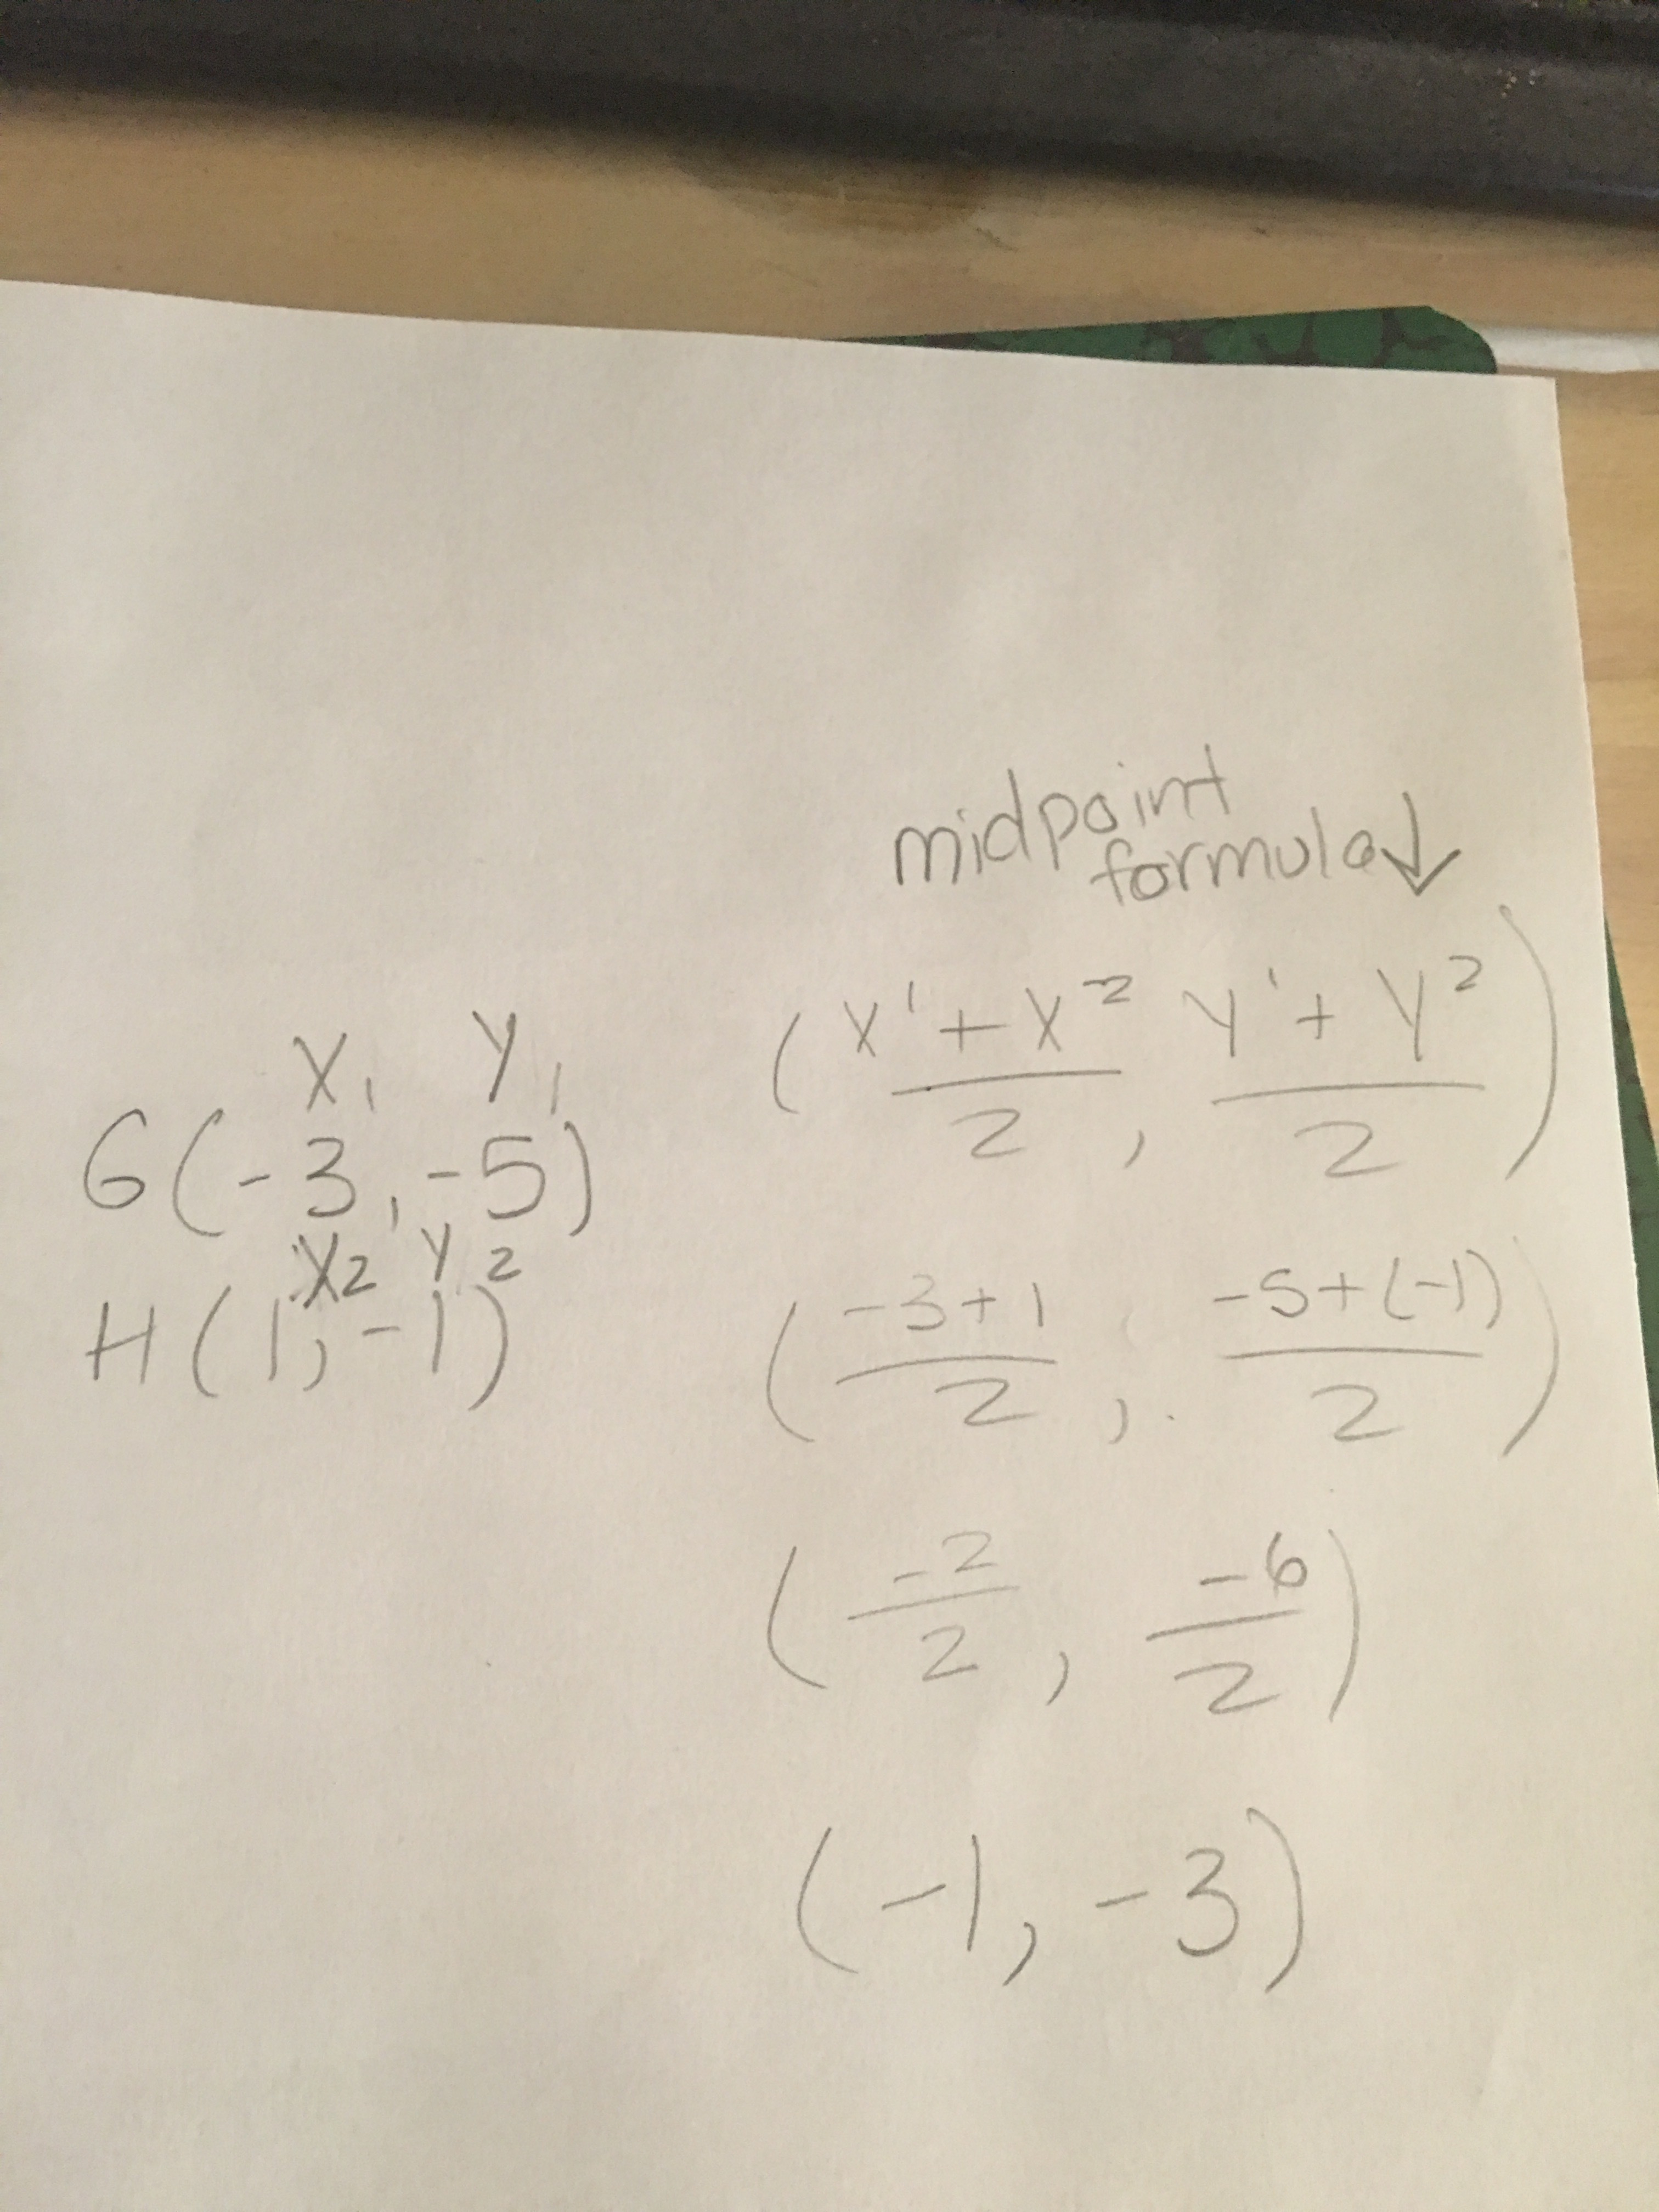 X₁ Y₁
G(-3, -5)
X₂ Y₂
H(1, -1)
midpoint
formula↓
(X¹+X²/2, Y¹+Y²/2)
(-3+1/2, -5+(-1)/2)
(-2/2, -6/2)
(-1, -3)